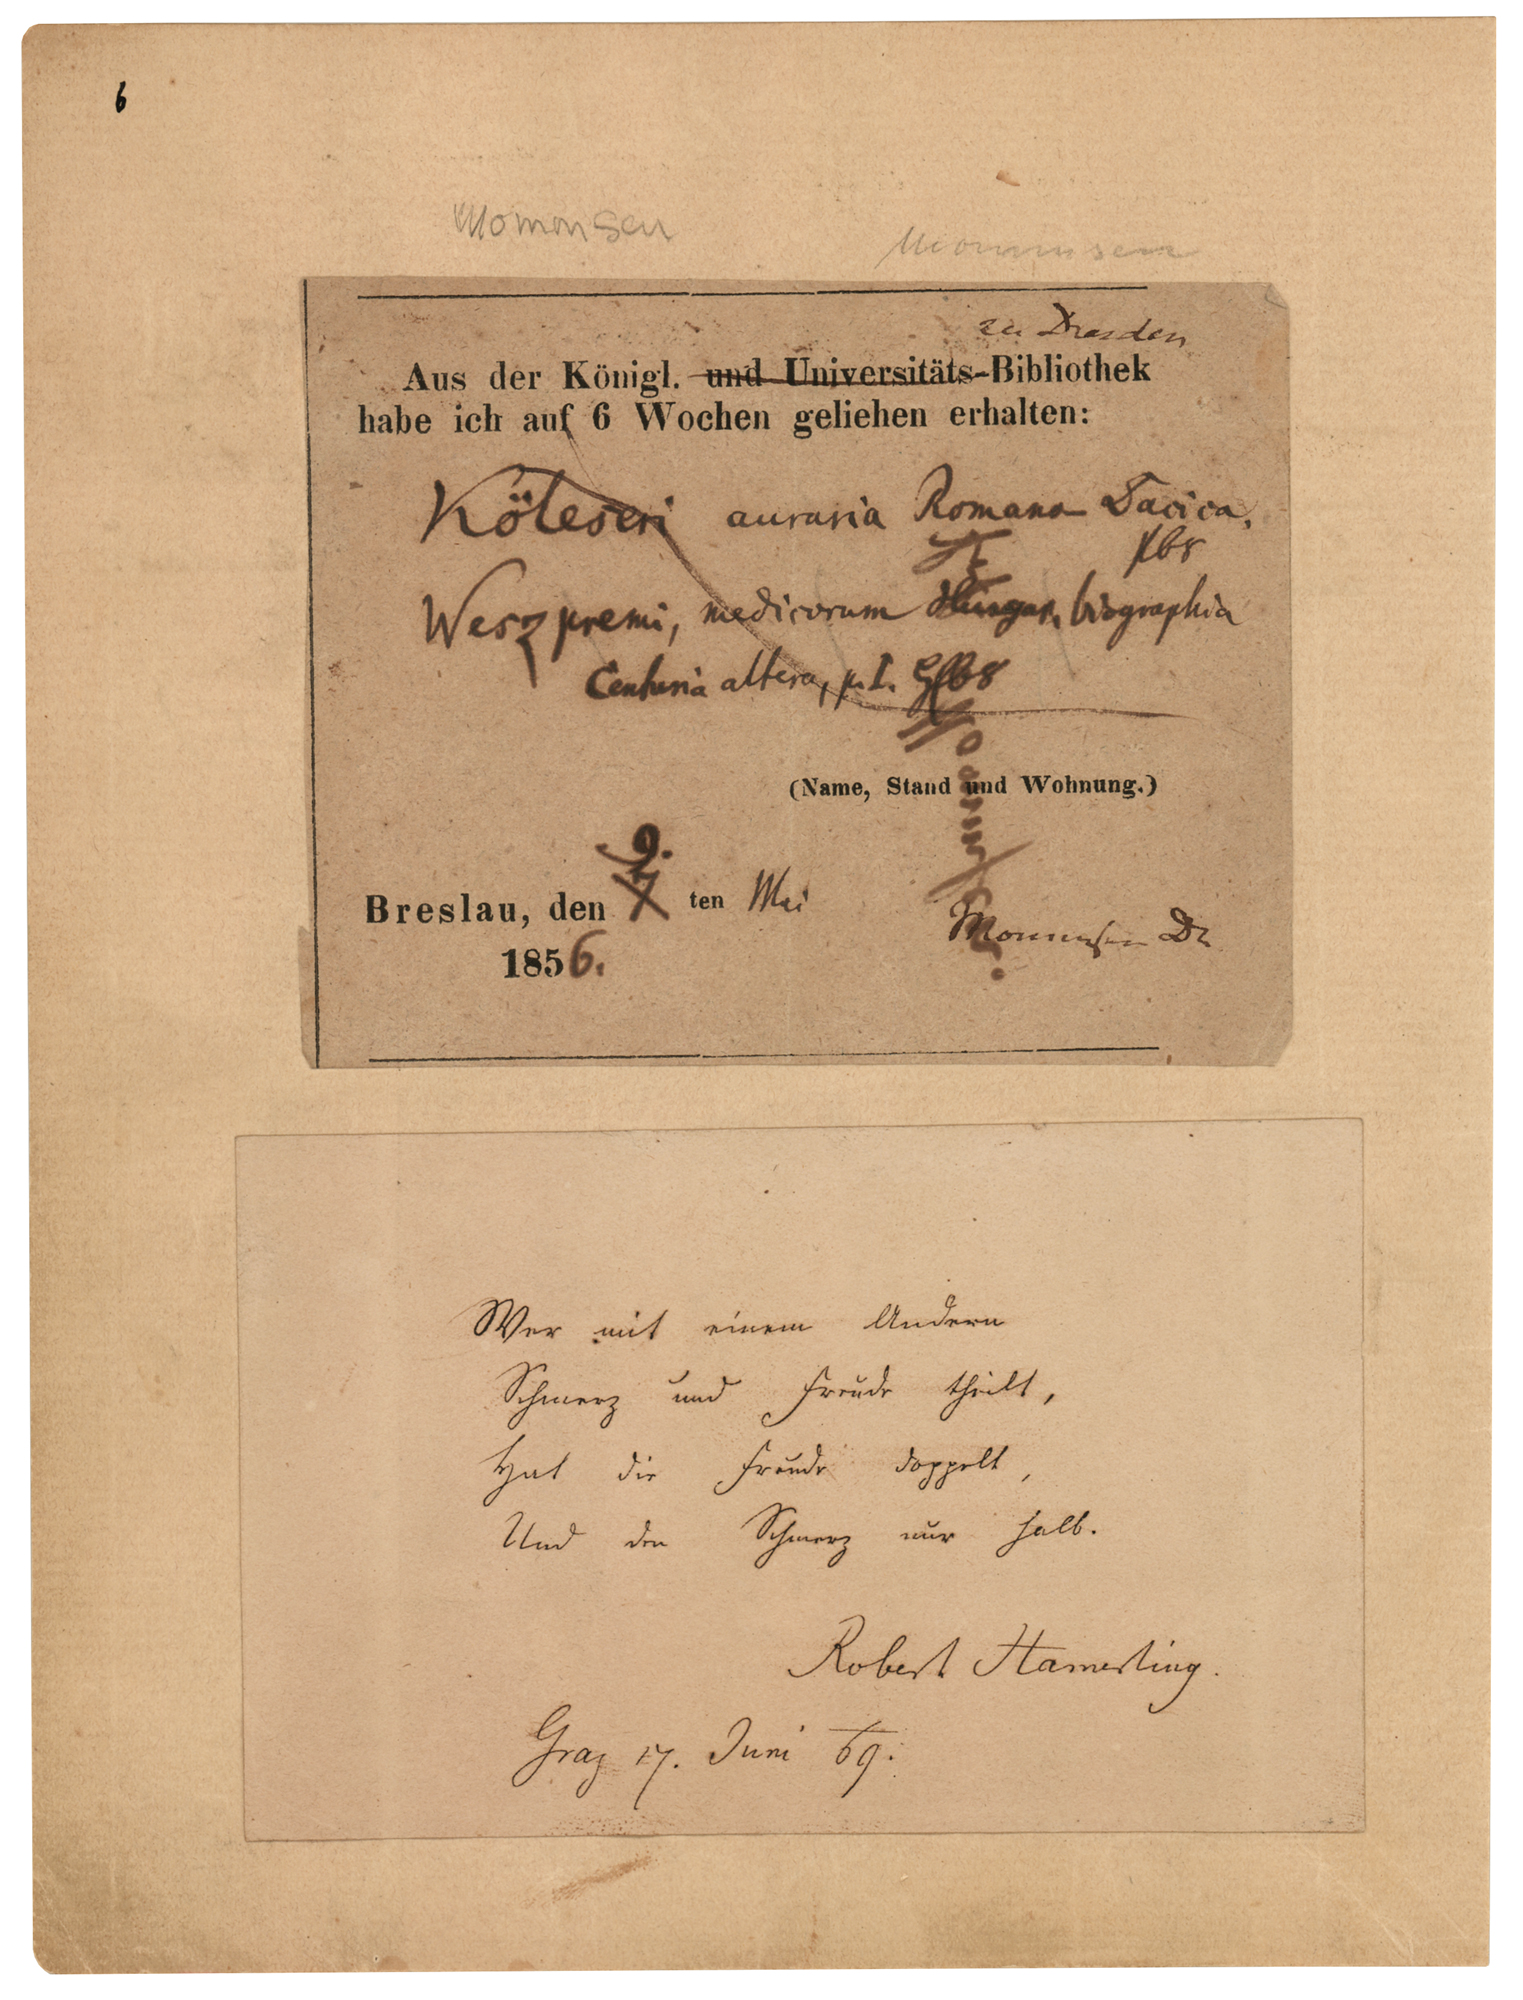 6
Mommsen
Mommsen
zu Dresden
Aus der Königl. und Universitäts-Bibliothek
habe ich auf 6 Wochen geliehen erhalten:
Köleseri auraria Romano Dacica.
Weszpremi, medicorum Hungar. biographia
Centuria altera, p. I.
(Name, Stand und Wohnung.)
9.
Breslau, den 7 ten Mai
1856.
Mommsen Dr
Wer mit einem Andern
Schmerz und Freude theilt,
Hat die Freude doppelt,
Und den Schmerz nur halb.
Robert Hamerling.
Graz 17. Juni 69.